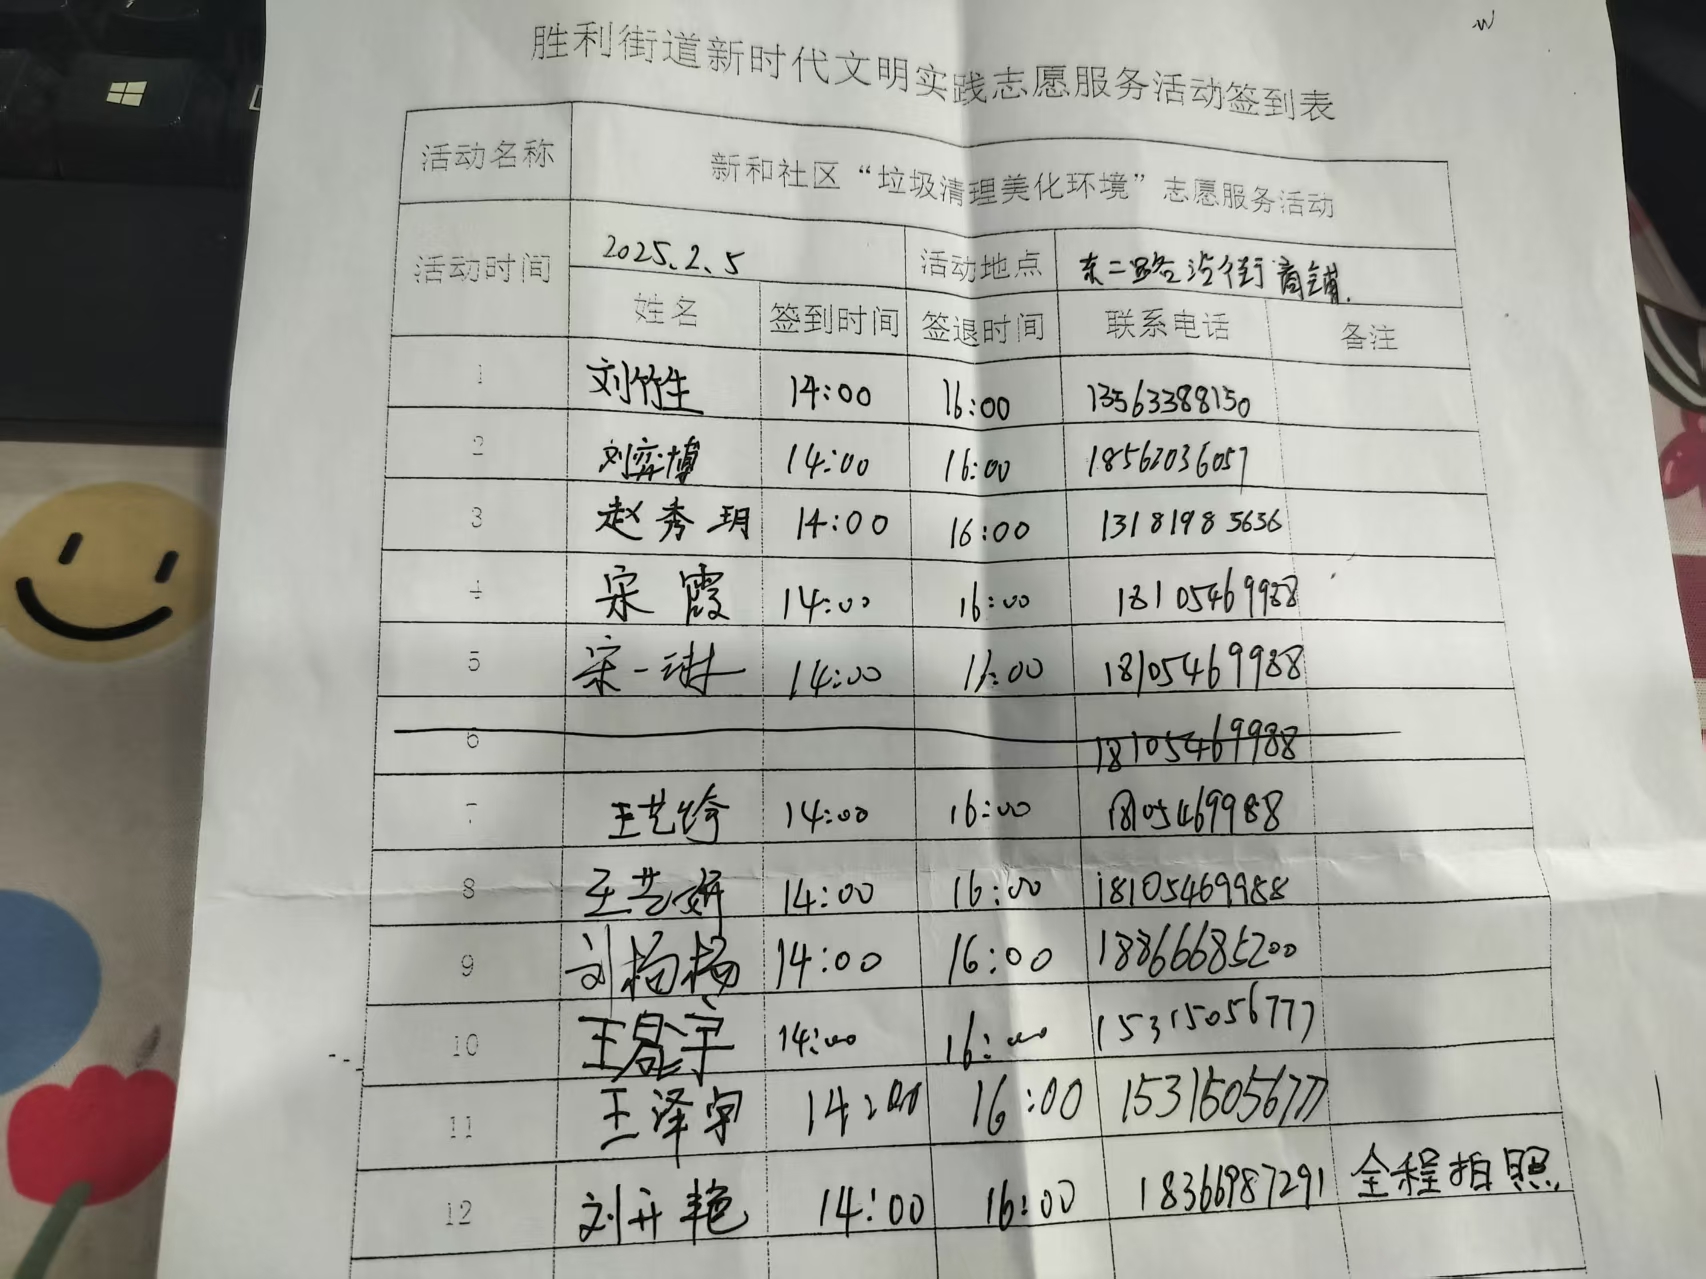 胜利街道新时代文明实践志愿服务活动签到表
活动名称 新和社区“垃圾清理美化环境”志愿服务活动
活动时间 2025.2.5 活动地点 东二路沿街商铺.
姓名 签到时间 签退时间 联系电话 备注
1 刘竹生 14:00 16:00 13563388150
2 刘弈博 14:00 16:00 18562036057
3 赵秀玥 14:00 16:00 13181985656
4 宋霞 14:00 16:00 18105469988
5 宋一琳 14:00 16:00 18105469988
6 18105469988
7 王艺 14:00 16:00 18105469988
8 王艺妍 14:00 16:00 18105469988
9 刘杨杨 14:00 16:00 18866685200
10 王昆宇 14:00 16:00 15315056777
11 王泽宇 14:00 16:00 15315056777
12 刘开艳 14:00 16:00 18366987291 全程拍照.